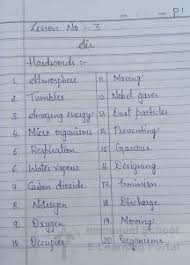 P1
Lesson No - 3
Air
Hardwords :-
1. Atmosphere
2. Tumbler
3. Amazing energy
4. Micro organisms
5. Respiration
6. Water vapour
7. Carbon dioxide
8. Nitrogen
9. Oxygen
10. Occupies
11. Moving
12. Nobel gases
13. Dust particles
14. Preventing
15. Gaseous
16. Designing
17.
18. Discharge
19. Moving
20. Organisms
School
E-Learning Portal